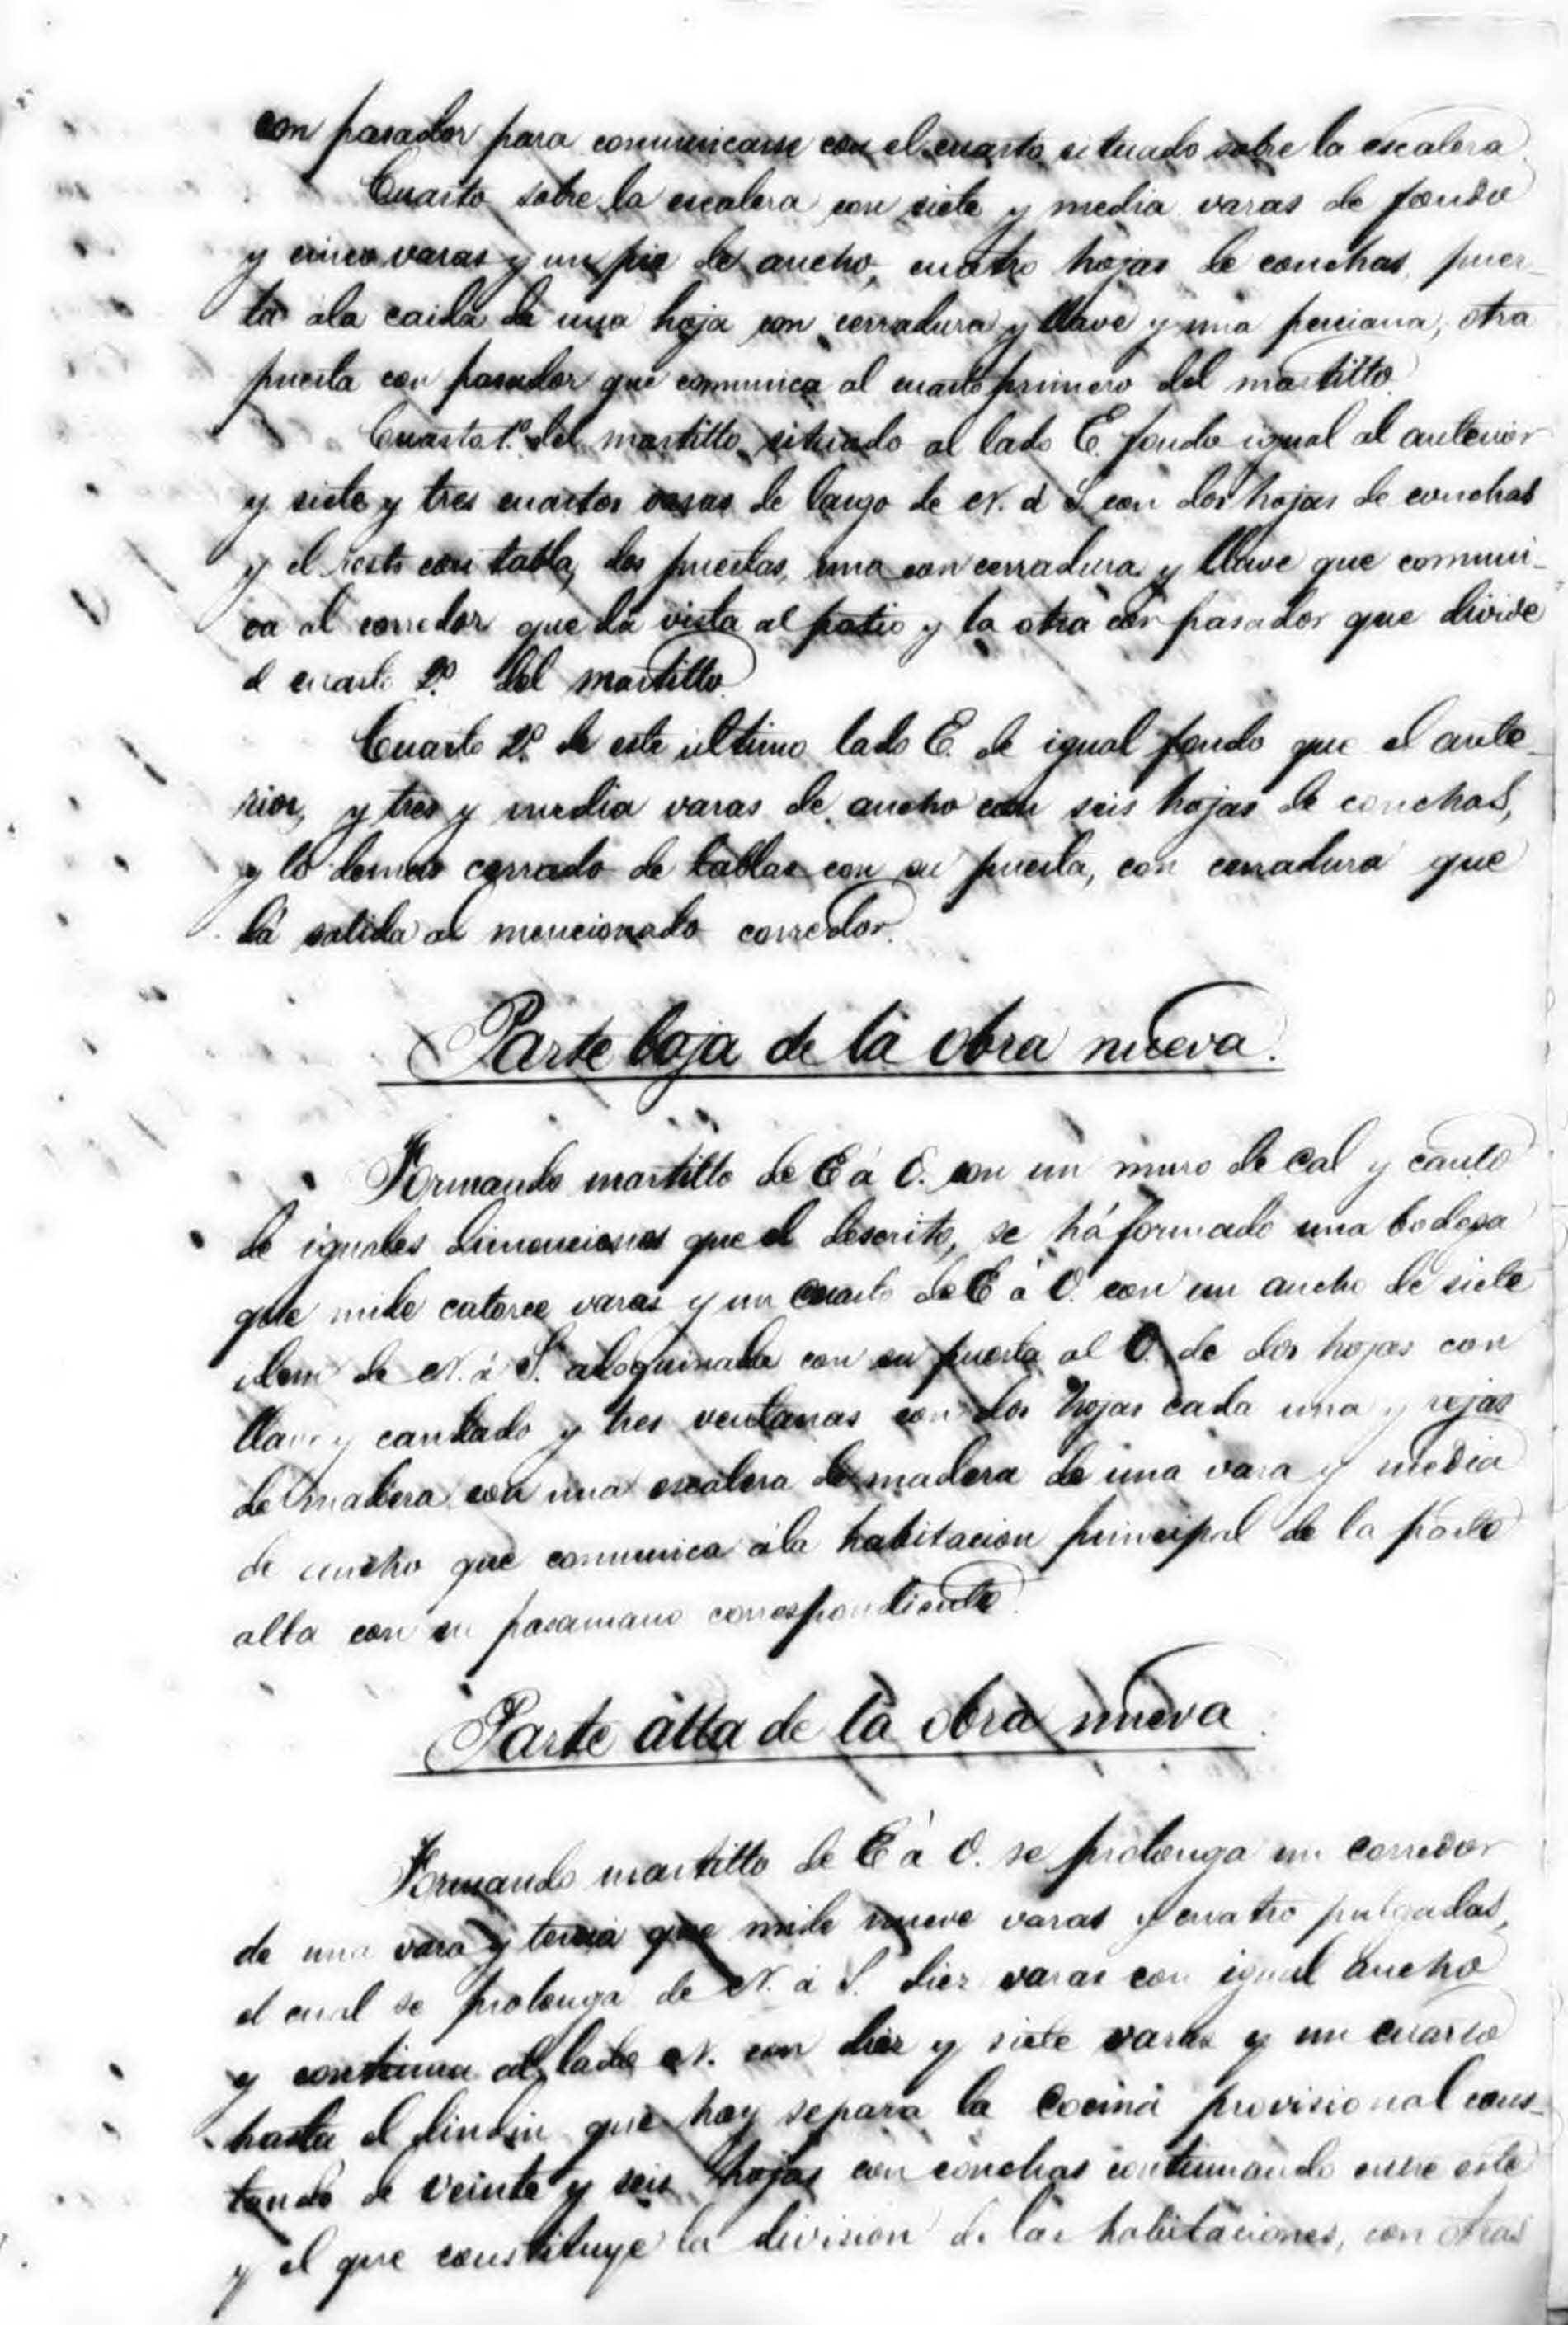 con pasador para comunicarse con el cuarto situado sobre la escalera
Cuarto sobre la escalera con siete y media varas de fondo
y cinco varas y un pie de ancho, cuatro hojas de conchas, puer-
ta ala caida de una hoja con cerradura y llave y una persiana, otra
puerta con pasador que comunica al cuarto primero del martillo.
Cuarto 1º del martillo situado al lado E. fondo igual al anterior
y siete y tres cuartos varas de largo de N. á S. con dos hojas de conchas
y el resto con tabla, dos puertas, una con cerradura y llave que comuni-
ca al corredor que dá vista al patio y la otra con pasador que divide
el cuarto 2º del martillo.
Cuarto 2º de este ultimo lado E. de igual fondo que el ante-
rior, y tres y media varas de ancho con seis hojas de conchas,
y lo demas cerrado de tablas con su puerta, con cerradura que
dá salida al mencionado corredor.
Parte baja de la obra nueva.
Formando martillo de E á O. con un muro de cal y canto
de iguales dimenciones que el descrito, se há formado una bodega
que mide catorce varas y un cuarto de E á O. con un ancho de siete
idem de N. á S. adoquinada con su puerta al O. de dos hojas con
llave y candado y tres ventanas con dos hojas cada una y rejas
de madera con una escalera de madera de una vara y media
de ancho que comunica ála habitacion principal de la parte
alta con su pasamano correspondiente.
Parte alta de la obra nueva.
Formando martillo de E á O. se prolonga un corredor
de una vara y tercia que mide nueve varas y cuatro pulgadas,
el cual se prolonga de N. á S. diez varas con igual ancho
y continua al lado N. con diez y siete varas y un cuarto
hasta el dindin que hoy separa la cocina provisional cons-
tando de veinte y seis hojas con conchas continuando entre este
y el que constituye la division de las habitaciones, con otras